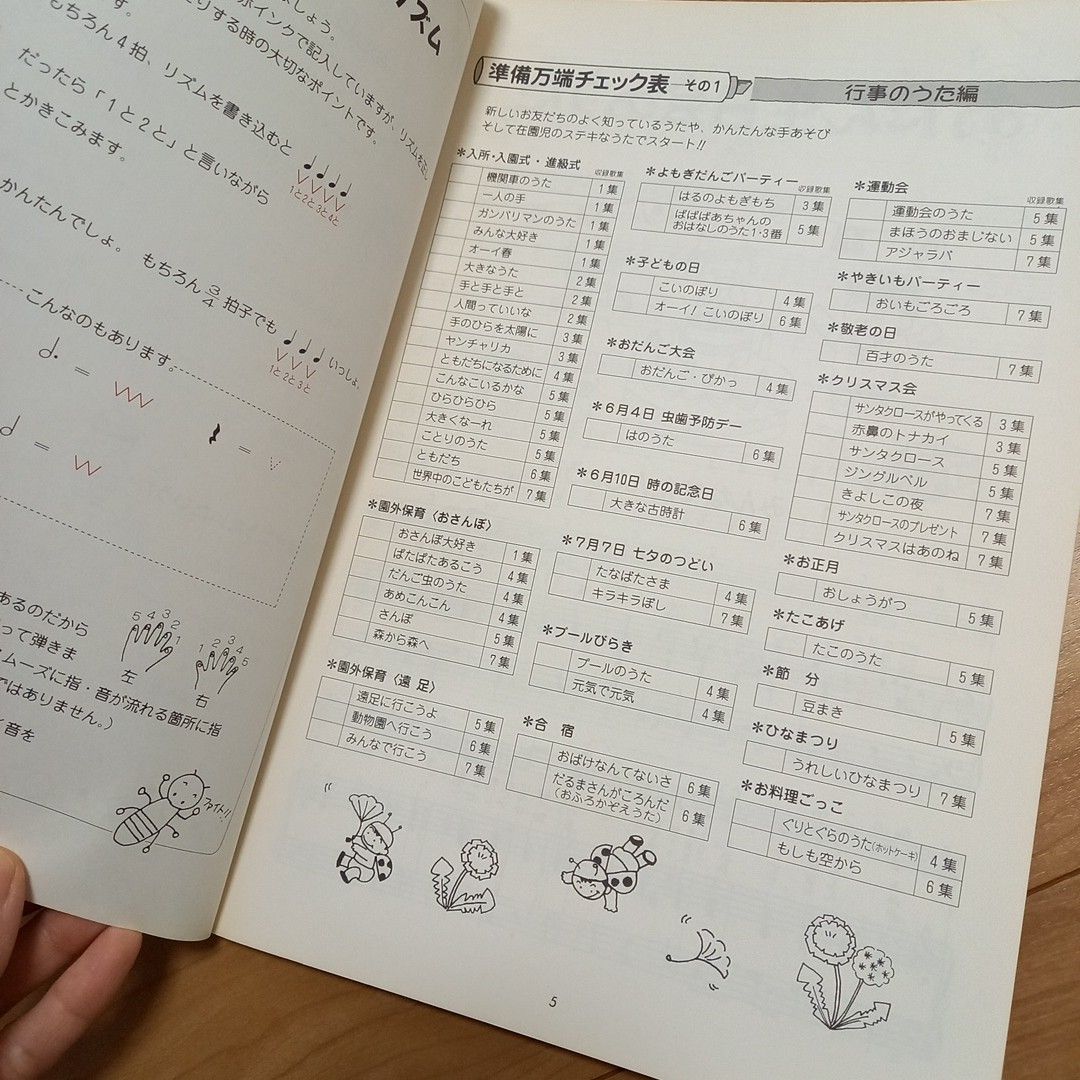 リズム
しょう。
ポインクで記入していますが、リズムを正し
とりする時の大切なポイントです。
す。
もちろん4拍、リズムを書き込むと
だったら「1と2と」と言いながら
1と2と3と4と
とかきこみます。
かんたんでしょ。 もちろん3/4拍子でも
いっしょ。
1と2と3と
こんなのもあります。
=
=
=
あるのだから
5 4 3 2 1
1 2 3 4 5
って弾きま
左
右
ムーズに指・音が流れる箇所に指
ではありません。)
音を
ファイト!!
準備万端チェック表 その1
行事のうた編
新しいお友だちのよく知っているうたや、かんたんな手あそび
そして在園児のステキなうたでスタート!!
*入所・入園式・進級式
収録歌集
機関車のうた 1集
一人の手 1集
ガンバリマンのうた 1集
みんな大好き 1集
オーイ春 1集
大きなうた 2集
手と手と手と 2集
人間っていいな 2集
手のひらを太陽に 3集
ヤンチャリカ 3集
ともだちになるために 4集
こんなこいるかな 5集
ひらひらひら 5集
大きくなーれ 5集
ことりのうた 5集
ともだち 6集
世界中のこどもたちが 7集
*園外保育〈おさんぽ〉
おさんぽ大好き 1集
ぱたぱたあるこう 4集
だんご虫のうた 4集
あめこんこん 4集
さんぽ 5集
森から森へ 7集
*園外保育〈遠足〉
遠足に行こうよ 5集
動物園へ行こう 6集
みんなで行こう 7集
*よもぎだんごパーティー
収録歌集
はるのよもぎもち 3集
ばばばあちゃんの
おはなしのうた1・3番 5集
*子どもの日
こいのぼり 4集
オーイ!こいのぼり 6集
*おだんご大会
おだんご・ぴかっ 4集
*6月4日 虫歯予防デー
はのうた 6集
*6月10日 時の記念日
大きな古時計 6集
*7月7日 七夕のつどい
たなばたさま 4集
キラキラぼし 7集
*プールびらき
プールのうた 4集
元気で元気 4集
*合 宿
おばけなんてないさ 6集
だるまさんがころんだ
(おふろかぞえうた) 6集
*運動会
収録歌集
運動会のうた 5集
まほうのおまじない 5集
アジャラパ 7集
*やきいもパーティー
おいもごろごろ 7集
*敬老の日
百才のうた 7集
*クリスマス会
サンタクロースがやってくる 3集
赤鼻のトナカイ 3集
サンタクロース 5集
ジングルベル 5集
きよしこの夜 7集
サンタクロースのプレゼント 7集
クリスマスはあのね 7集
*お正月
おしょうがつ 5集
*たこあげ
たこのうた 5集
*節 分
豆まき 5集
*ひなまつり
うれしいひなまつり 7集
*お料理ごっこ
ぐりとぐらのうた(ホットケーキ) 4集
もしも空から 6集
5